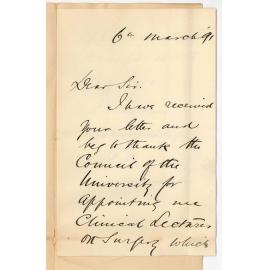 6th March 91
Dear Sir.
I have received
your letter and
beg to thank the
Council of the
University for
appointing me
Clinical Lecturer
on Surgery which